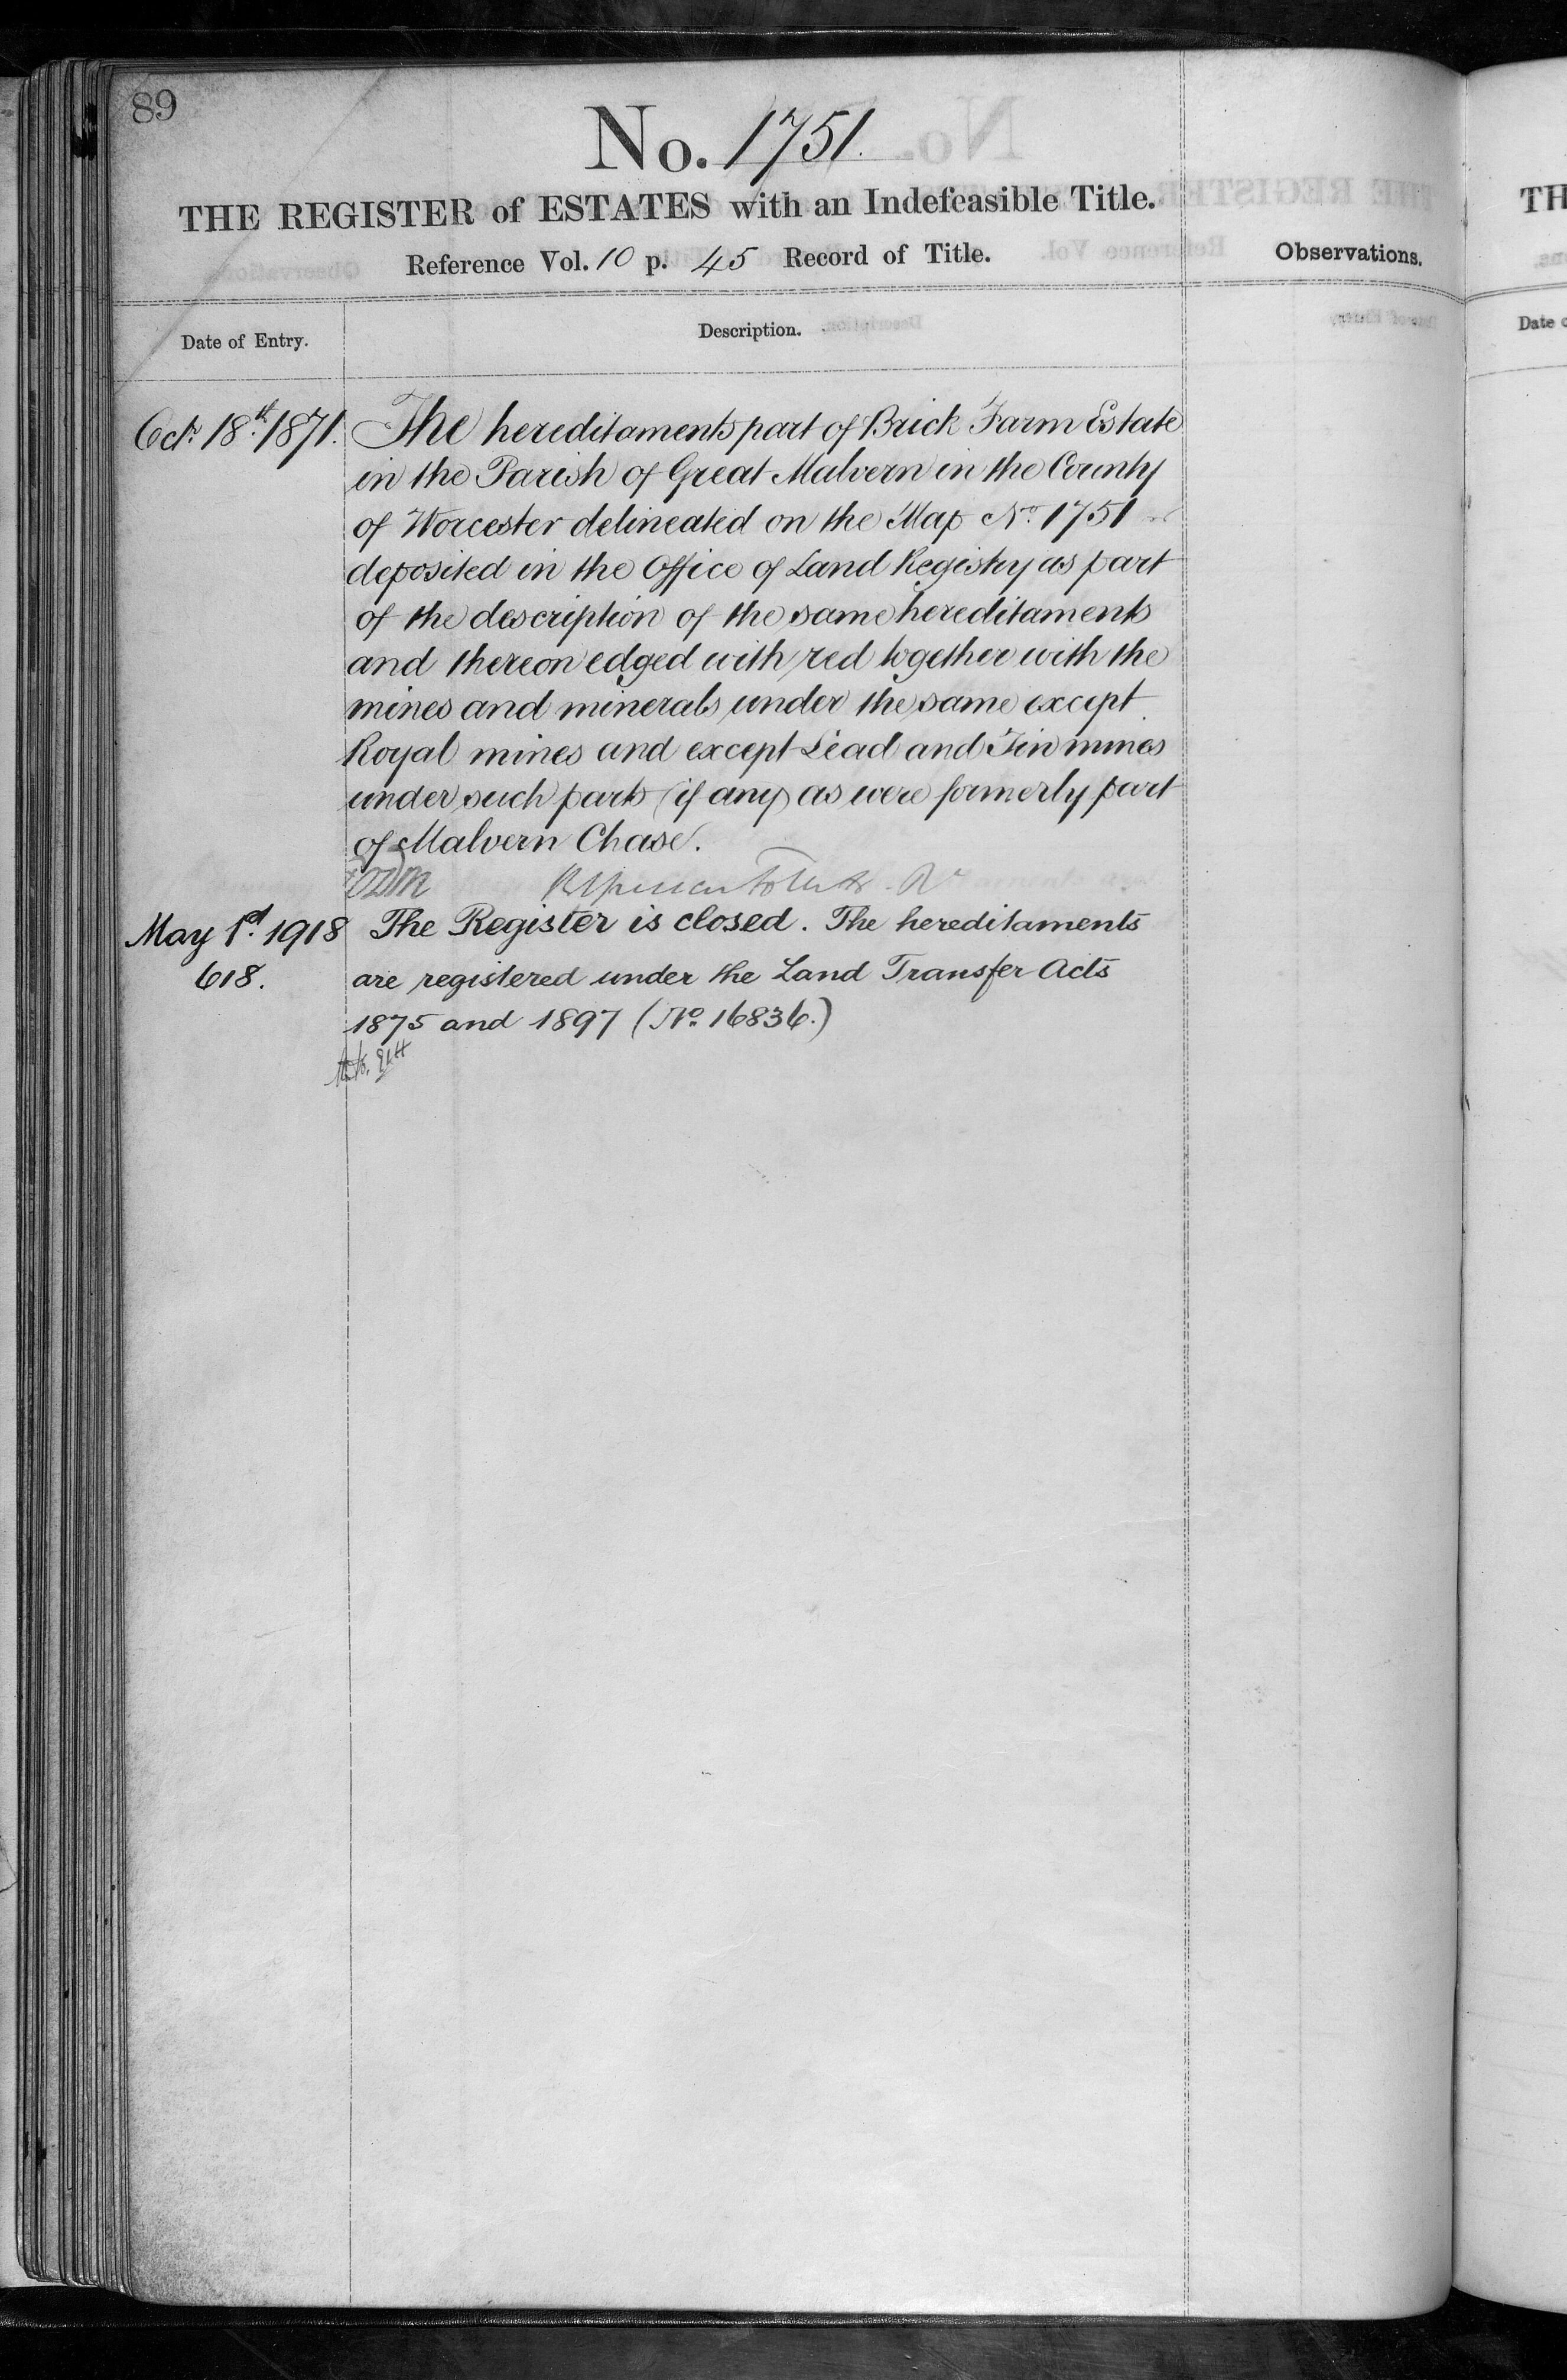 89
No. 1751.
THE REGISTER of ESTATES with an Indefeasible Title.
Reference Vol. 10 p. 45 Record of Title.
Observations.
Date of Entry.
Description.
Octr. 18th. 1871. The hereditaments part of Brick Farm Estate
in the Parish of Great Malvern in the County
of Worcester delineated on the Map No. 1751
deposited in the Office of Land Registry as part
of the description of the same hereditaments
and thereon edged with red together with the
mines and minerals under the same except
Royal mines and except Lead and Tin mines
under such parts (if any) as were formerly part
of Malvern Chase.
May 1st. 1918 The Register is closed. The hereditaments
618. are registered under the Land Transfer Acts
1875 and 1897 (No. 16836.)
TH
Date